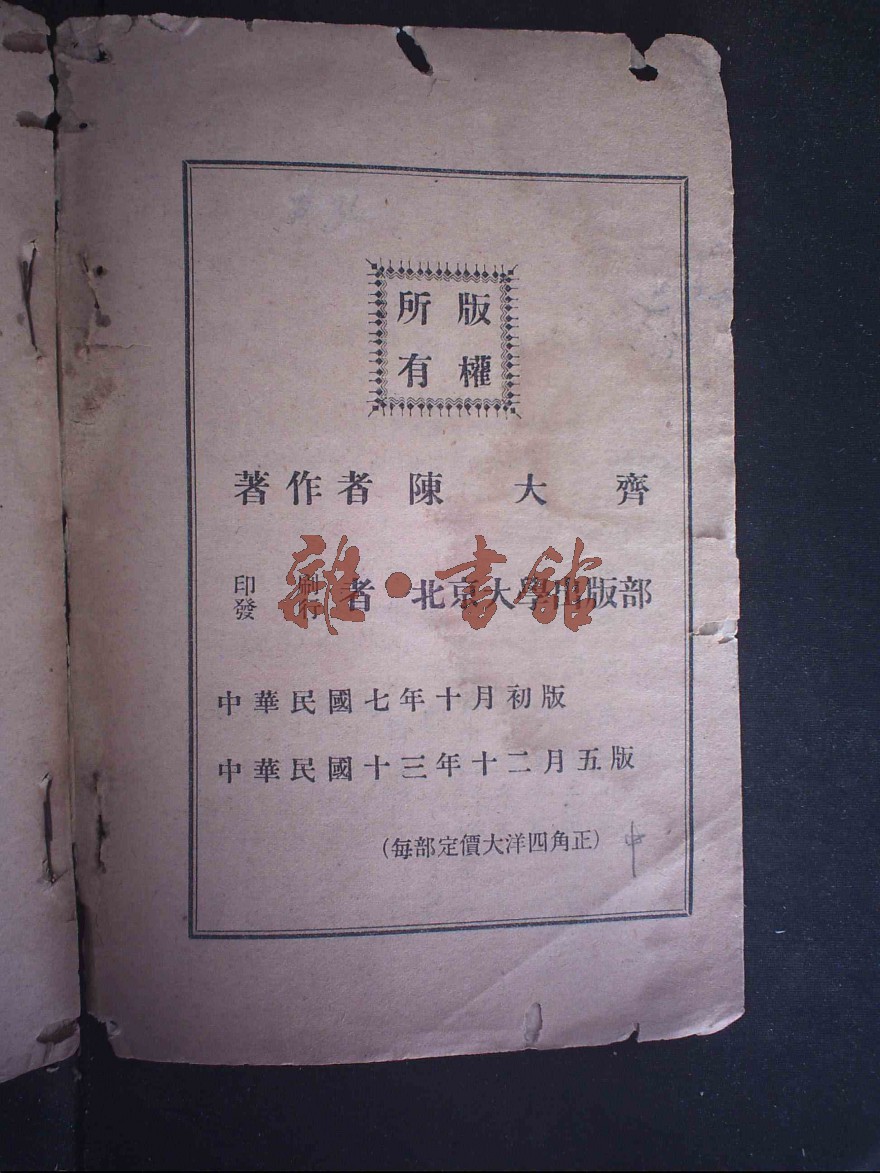 版權
所有
著作者 陳大齊
印刷
發行
者 北京大學出版部
雜·書館
中華民國七年十月初版
中華民國十三年十二月五版
(每部定價大洋四角正)
中